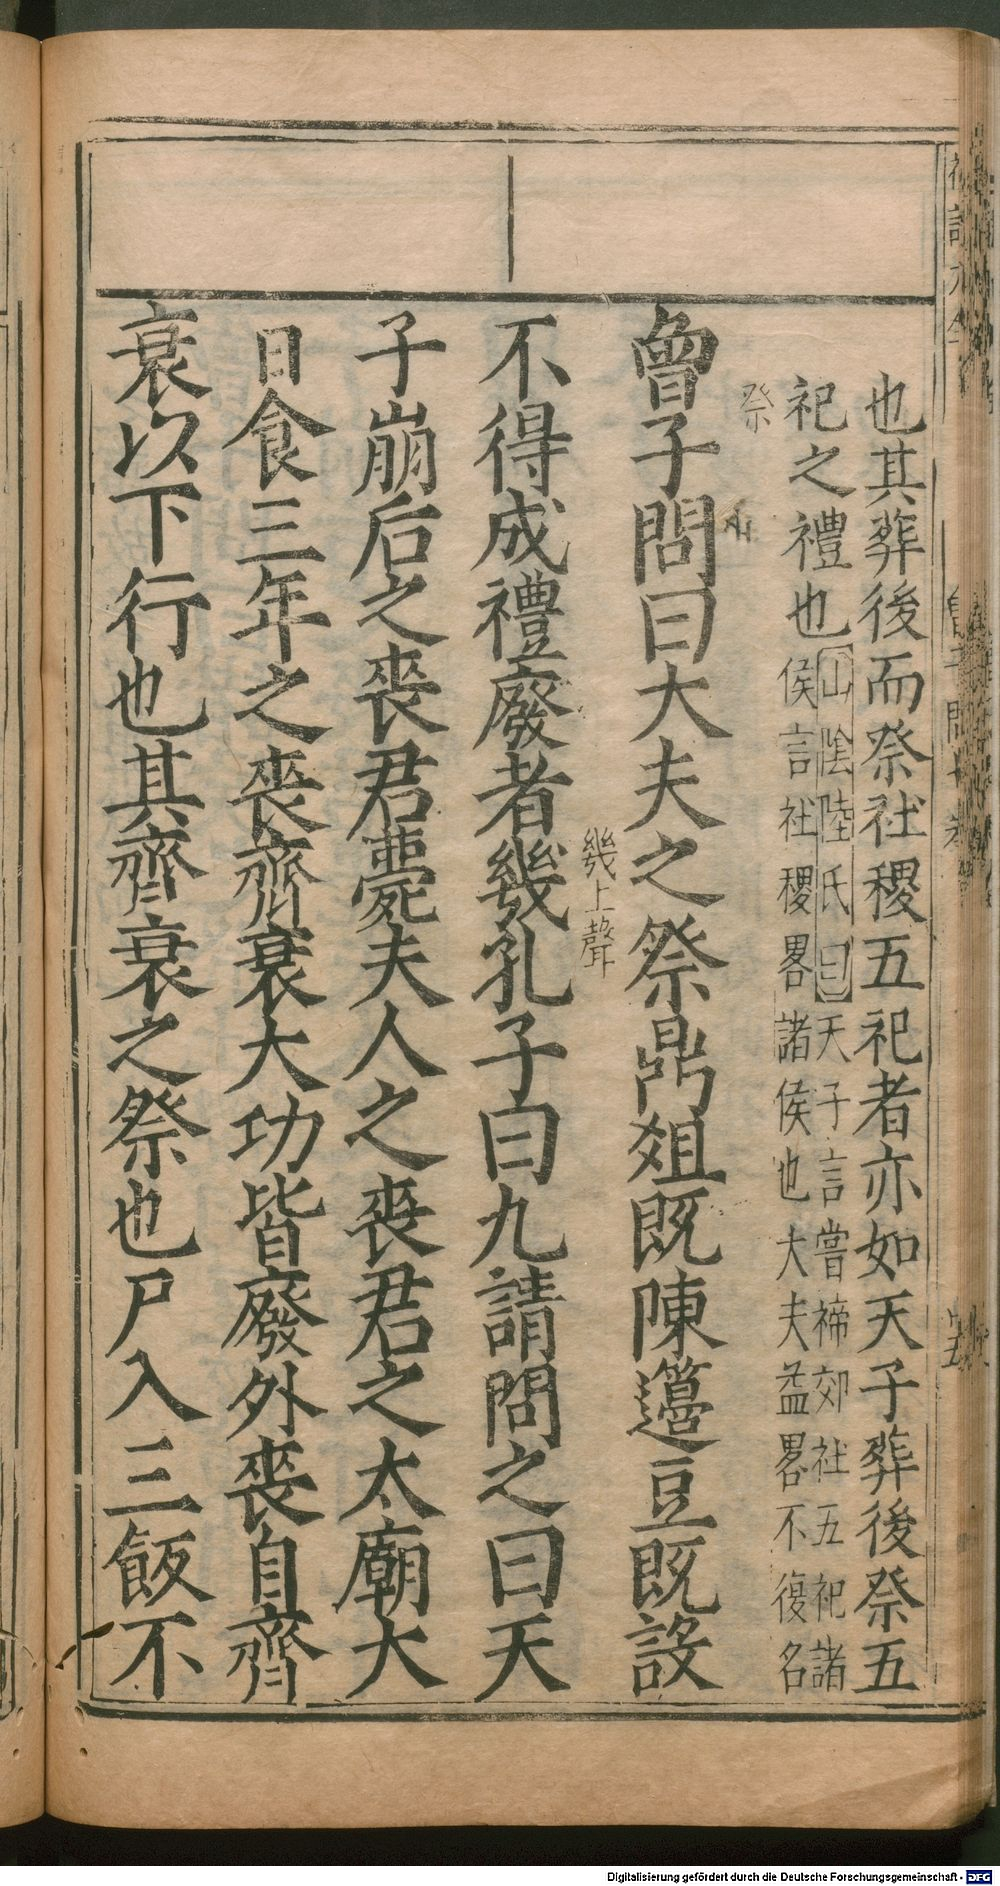 也其葬後而祭社稷五祀者亦如天子葬後祭五
祀之禮也
山陰陸氏曰天子言嘗禘郊社五祀諸
侯言社稷畧諸侯也大夫益畧不復名
祭
曾子問曰大夫之祭鼎俎既陳籩豆既設
幾上聲
不得成禮廢者幾孔子曰九請問之曰天
子崩后之喪君薨夫人之喪君之太廟火
日食三年之喪齊衰大功皆廢外喪自齊
衰以下行也其齊衰之祭也尸入三飯不
Digitalisierung gefördert durch die Deutsche Forschungsgemeinschaft - DFG